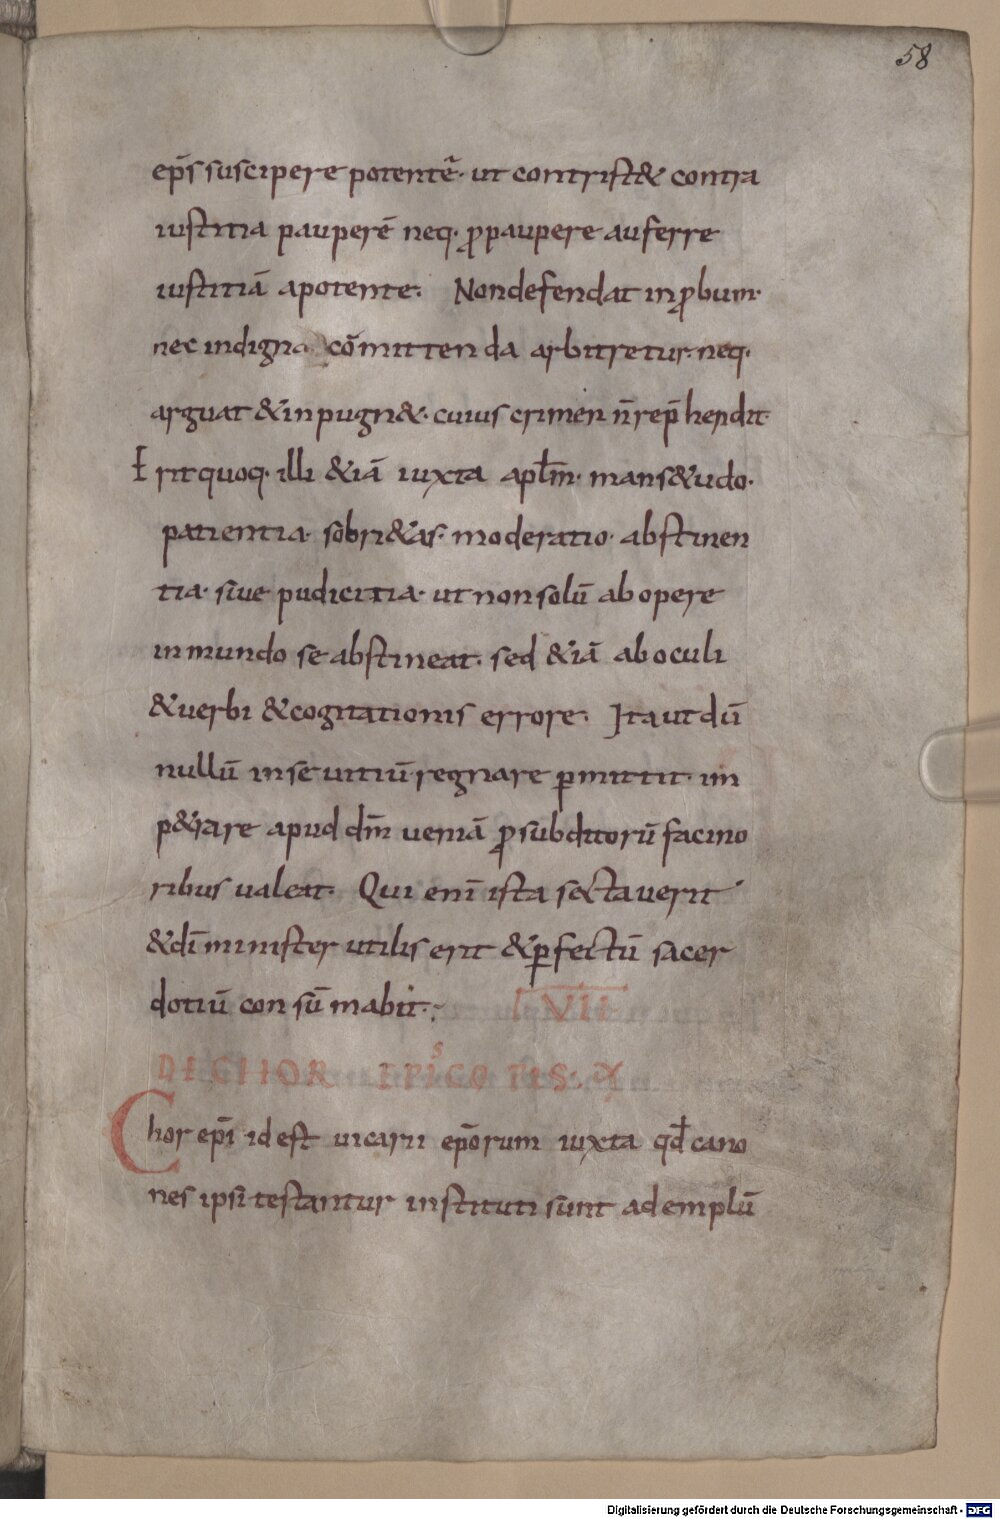 58
ep̄s suscipere potentē· ut contrist& contra
iustitia pauperē neq· ꝓpaupere auferre
iustitiā apotente· Nondefendat inꝓbum·
nec indigna cōmittenda arbitretur· neq·
arguat &inpugn&· cuius crimen n̄ rep̄hendit·
Erit quoq· illi &iā iuxta apl̄m· mans&udo·
patientia· sobri&as· moderatio· abstinen
tia· siue pudicitia· ut non solū ab opere
inmundo se abstineat· sed &iā ab oculi
&uerbi &cogitationis errore· Ita ut dū
nullū in se uitiū regnare ꝑmittit· im
p&rare apud dm̄ ueniā ꝓ subditorū facino
ribus ualeat· Qui enī ista sectauerit
&dī minister utilis erit &ꝑfectū sacer
dotiū consūmabit·
LVII
DE CHOR EPISCOPIS· X
Chor ep̄i id est uicarii ep̄orum iuxta qd̄ cano
nes ipsi testantur instituti sunt ad emplū
Digitalisierung gefördert durch die Deutsche Forschungsgemeinschaft - DFG